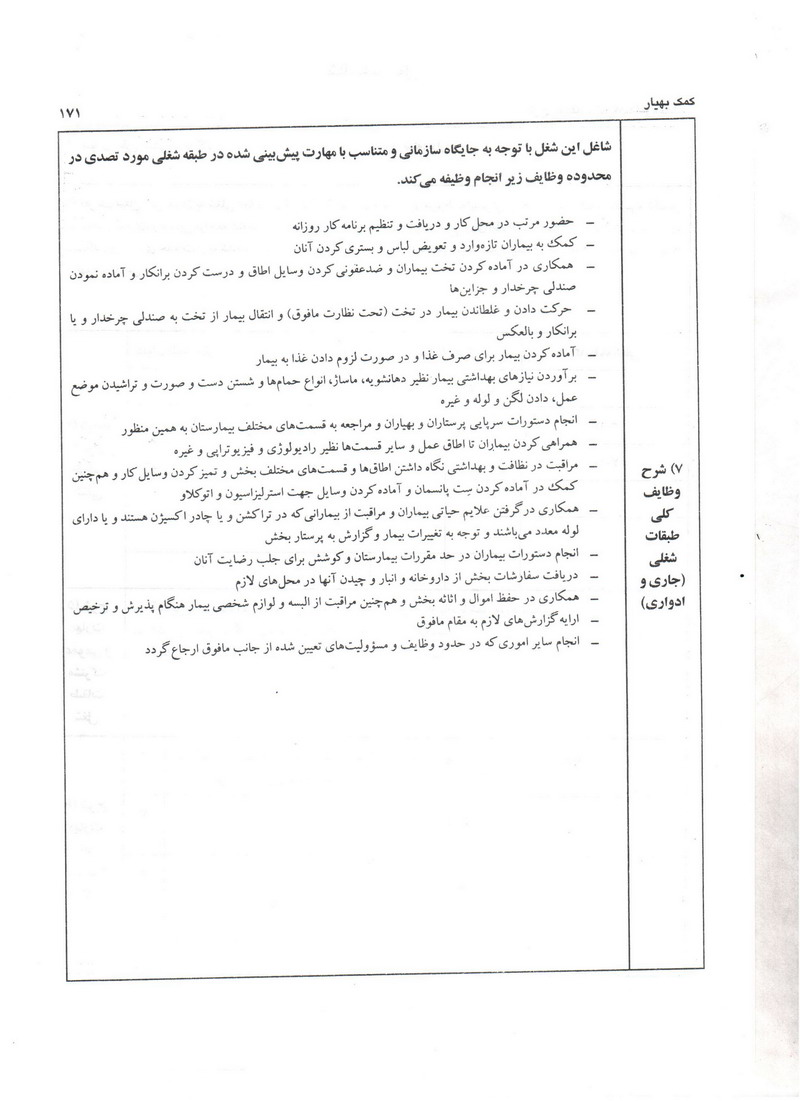 کمک بهیار
۱۷۱
شاغل این شغل با توجه به جایگاه سازمانی و متناسب با مهارت پیش‌بینی شده در طبقه شغلی مورد تصدی در
محدوده وظایف زیر انجام وظیفه می‌کند.
– حضور مرتب در محل کار و دریافت و تنظیم برنامه کار روزانه
– کمک به بیماران تازه‌وارد و تعویض لباس و بستری کردن آنان
– همکاری در آماده کردن تخت بیماران و ضدعفونی کردن وسایل اطاق و درست کردن برانکار و آماده نمودن
صندلی چرخدار و جزاین‌ها
– حرکت دادن و غلطاندن بیمار در تخت (تحت نظارت مافوق) و انتقال بیمار از تخت به صندلی چرخدار و یا
برانکار و بالعکس
– آماده کردن بیمار برای صرف غذا و در صورت لزوم دادن غذا به بیمار
– برآوردن نیازهای بهداشتی بیمار نظیر دهانشویه، ماساژ، انواع حمام‌ها و شستن دست و صورت و تراشیدن موضع
عمل، دادن لگن و لوله و غیره
– انجام دستورات سرپایی پرستاران و بهیاران و مراجعه به قسمت‌های مختلف بیمارستان به همین منظور
– همراهی کردن بیماران تا اطاق عمل و سایر قسمت‌ها نظیر رادیولوژی و فیزیوتراپی و غیره
– مراقبت در نظافت و بهداشتی نگاه داشتن اطاق‌ها و قسمت‌های مختلف بخش و تمیز کردن وسایل کار و هم‌چنین
کمک در آماده کردن سِت پانسمان و آماده کردن وسایل جهت استرلیزاسیون و اتوکلاو
– همکاری درگرفتن علایم حیاتی بیماران و مراقبت از بیمارانی که در تراکشن و یا چادر اکسیژن هستند و یا دارای
لوله معدد می‌باشند و توجه به تغییرات بیمار وگزارش به پرستار بخش
– انجام دستورات بیماران در حد مقررات بیمارستان وکوشش برای جلب رضایت آنان
– دریافت سفارشات بخش از داروخانه و انبار و چیدن آنها در محل‌های لازم
– همکاری در حفظ اموال و اثاثه بخش و هم‌چنین مراقبت از البسه و لوازم شخصی بیمار هنگام پذیرش و ترخیص
– ارایه گزارش‌های لازم به مقام مافوق
– انجام سایر اموری که در حدود وظایف و مسؤولیت‌های تعیین شده از جانب مافوق ارجاع گردد
۷) شرح
وظایف
کلی
طبقات
شغلی
(جاری و
ادواری)